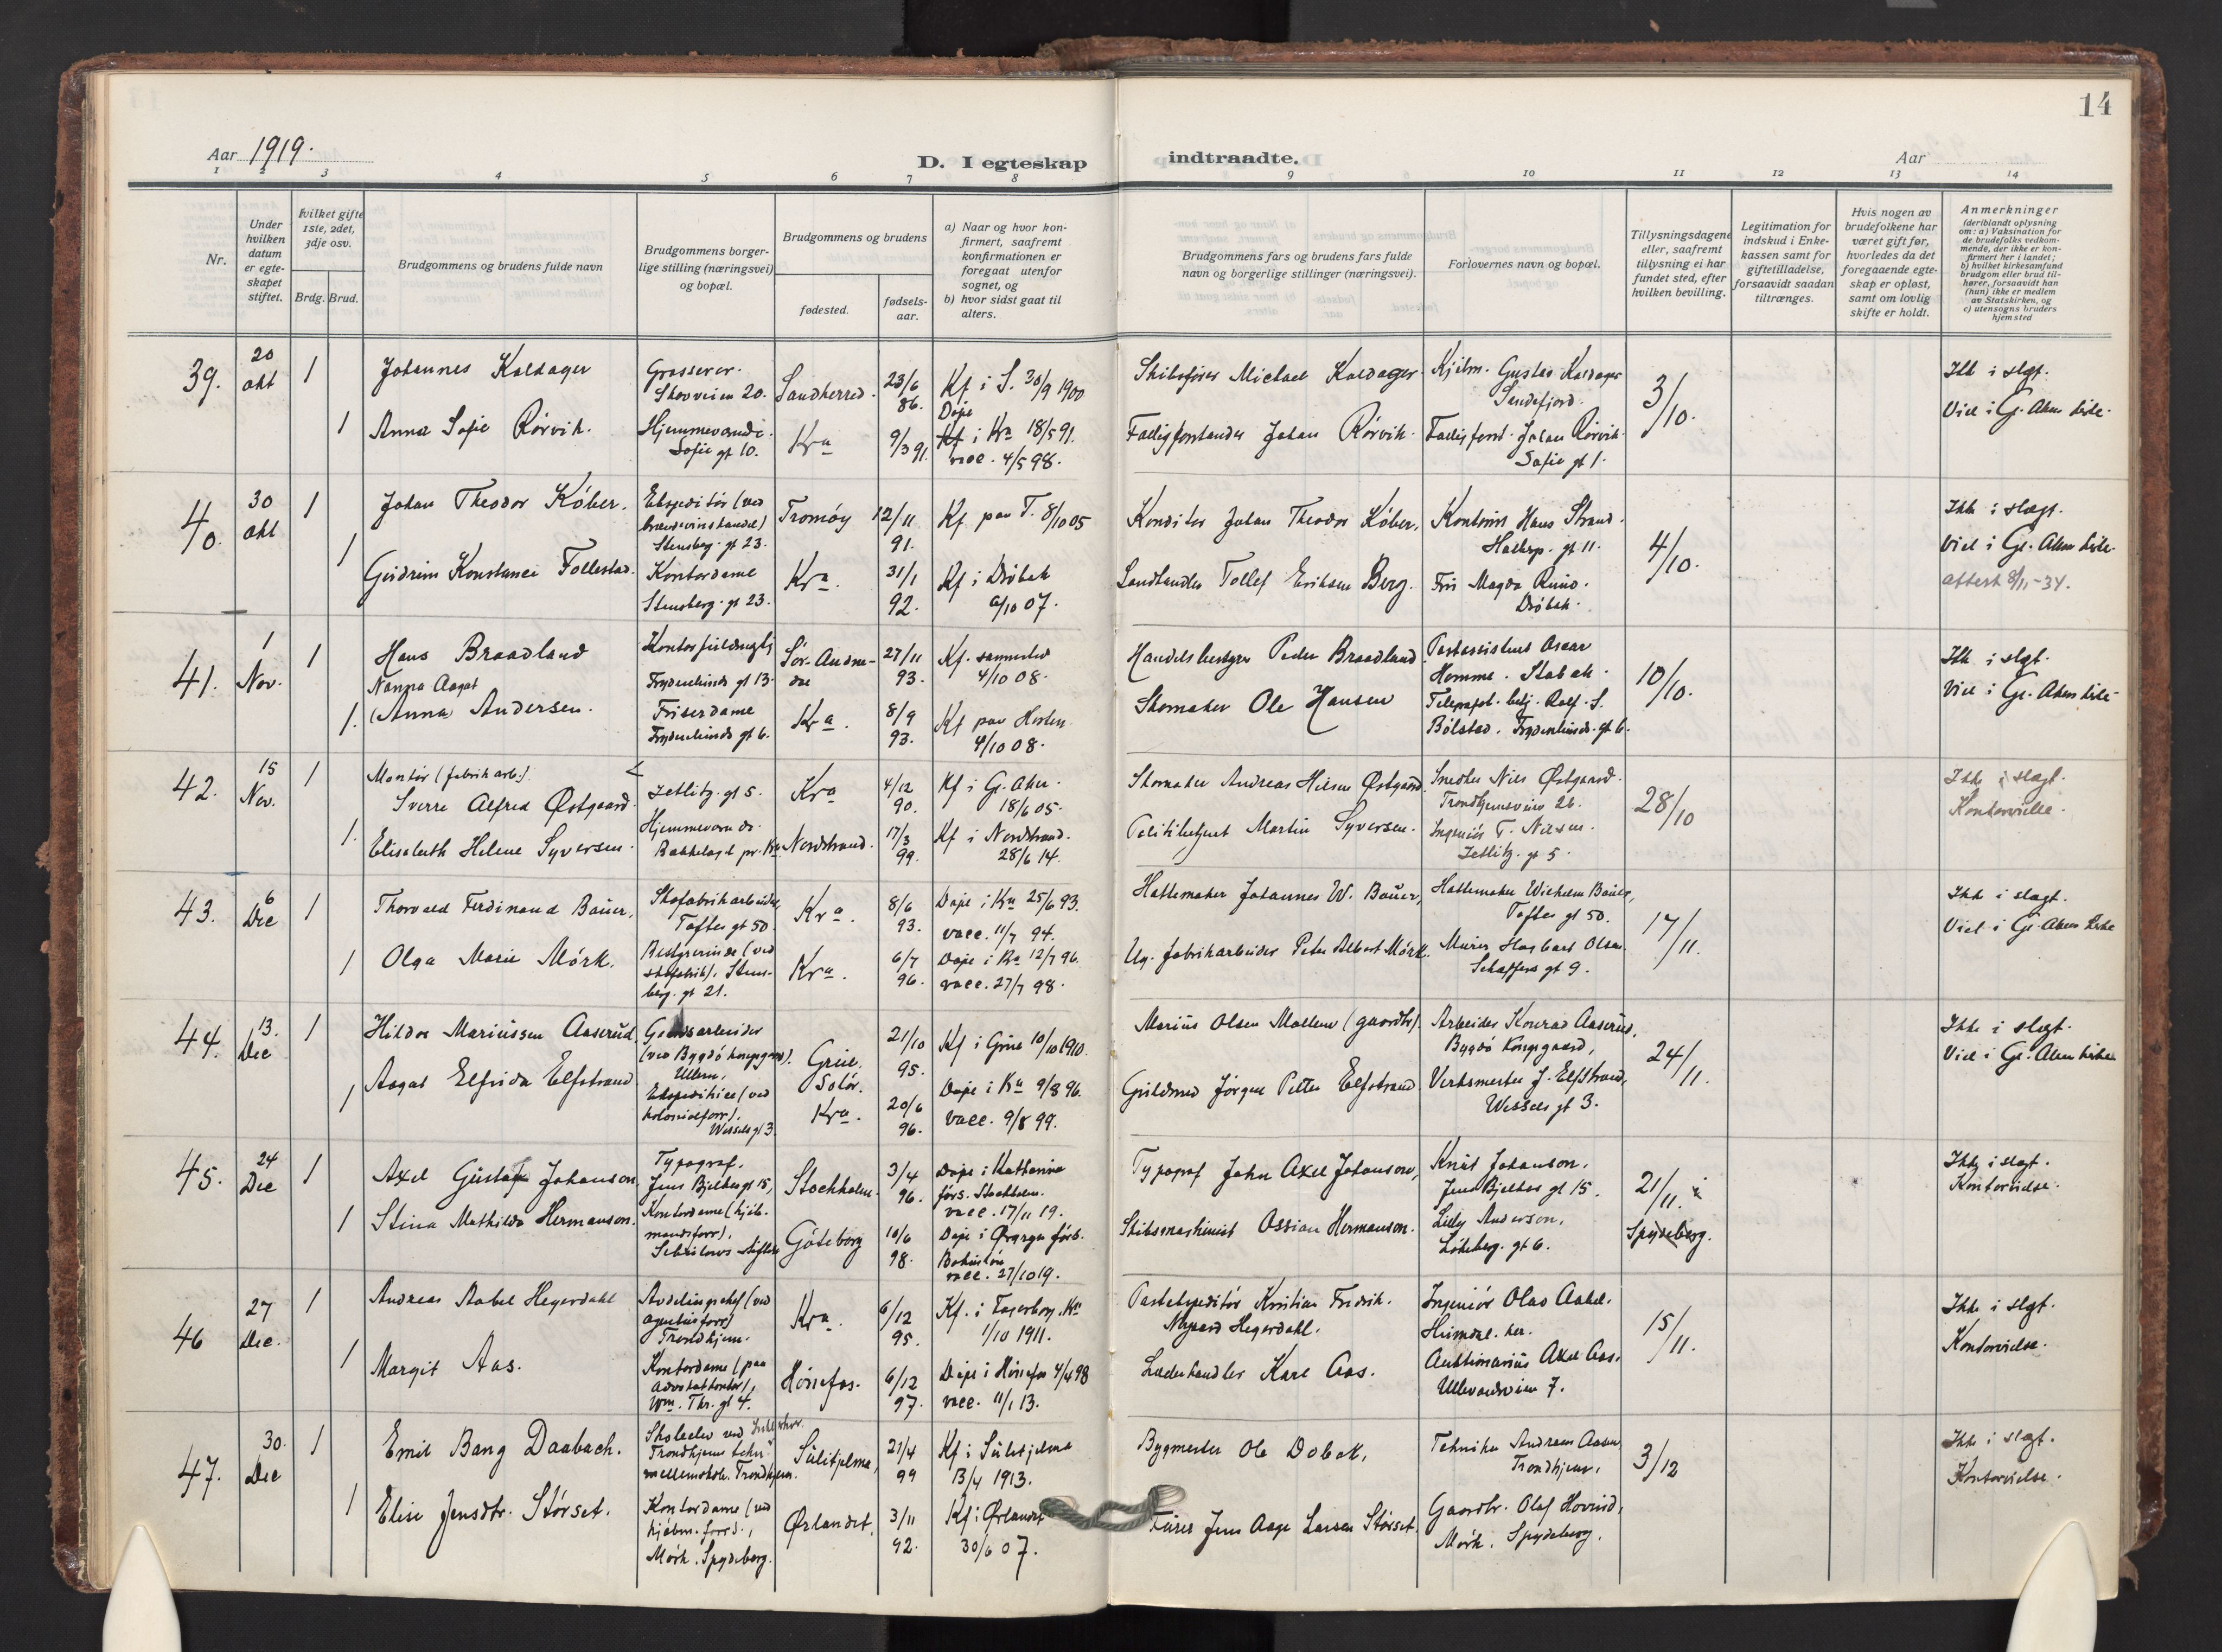 14
Aar 1919.
D. I egteskap indtraadte.
Aar
1 2 3 4 5 6 7 8 9 10 11 12 13 14
Nr.
Under hvilken datum er egteskapet stiftet.
hvilket gifte 1ste, 2det, 3dje osv.
Brdg. Brud.
Brudgommens og brudens fulde navn
Brudgommens borgerlige stilling (næringsvei) og bopæl.
Brudgommens og brudens
fødested.
fødselsaar.
a) Naar og hvor konfirmert, saafremt konfirmationen er foregaat utenfor sognet, og
b) hvor sidst gaat til alters.
Brudgommens fars og brudens fars fulde navn og borgerlige stillinger (næringsvei).
Forlovernes navn og bopæl.
Tillysningsdagene eller, saafremt tillysning ei har fundet sted, efter hvilken bevilling.
Legitimation for indskud i Enkekassen samt for giftetilladelse, forsaavidt saadan tiltrænges.
Hvis nogen av brudefolkene har været gift før, hvorledes da det foregaaende egteskap er opløst, samt om lovlig skifte er holdt.
Anmerkninger
(deriblandt oplysning om: a) Vaksination for de brudefolks vedkommende, der ikke er konfirmert her i landet; b) hvilket kirkesamfund brudgom eller brud tilhører, forsaavidt han (hun) ikke er medlem av Statskirken, og c) utensogns bruders hjemsted
39. 20 okt 1 Johannes Kaldager Grosserer. Skovveien 20. Sandherred. 23/6 86. Kf i S. 30/9 1900 Skibsfører Michael Kaldager. Gustav Kaldager Sandefjord. 3/10. Ikke i slgt.
1 Anna Sofie Rørvik. Hjemmeværende. Sofie gt 10. Kra 9/3 91. Døpt i Kra 18/5 91. vacc. 4/5 98. Johan Rørvik. Johan Rørvik. Sofie gt 1. Viet i Gl. Aker kirke.
40. 30 okt 1 Johan Theodor Köber. Ekspeditör (ved brændevinshandel) Stensberg. gt 23. Tromøy 12/11 91. Kf paa T. 8/10 05 Konditor Johan Theodor Köber. Kontorist Hans Strand. gt 11. 4/10. Ikke i slægt.
1 Konstance Follestad. Kontordame Stensberg. gt 23. Kra. 31/1 92. Kf i Drøbak 6/10 07. Landhandler Tollef Eriksen Berg. Frk Magda Ruud. Drøbak. Viet i Gl. Aker kirke.
attest 8/11-34.
41. 1 Nov. 1 Hans Braadland Frydenlunds gt 13. Sør-Audnedal 27/11 93. Kf. sammested 4/10 08. Handelsbestyrer Peder Braadland. Postassistent Oscar Homme. Stabæk. 10/10. Ikke i slgt.
Nanna Aagot
1. (Anna) Andersen. Friserdame Frydenlunds gt 6. Kra. 8/9 93. Kf paa Horten 4/10 08. Skomaker Ole Hansen Telegrafbetj. Rolf S. Bölstad. Frydenlunds. gt 6. Viet i Gl. Aker kirke.
42. 15 Nov. 1 Montør (fabrikarb.) Sverre Alfred Østgaard. Jetlitz. gt 5. Kra 4/12 90. Kf i Gl. Aker. 18/6 05. Skomaker Andreas Nilsen Østgaard. Snedker Nils Østgaard. Trondhjemsveien 26. 28/10 Ikke i slægt.
1. Elisabeth Helene Syversen. Hjemmeværende. Bækkelaget pr. Kra. Nordstrand. 17/3 99. Kf i Nordstrand. 28/6 14. Politibetjent Martin Syversen. Ingeniør T. Nilsen. Jetlitz. gt 5. Kontorvielse.
43. 6 Dec 1 Thorvald Ferdinand Bauer. Skofabrikarbeider, Toftes gt 50. Kra. 8/6 93. Døpt i Kra 25/6 93. vacc. 11/7 94. Hattemaker Johannes W. Bauer, Hattemaker Wilhelm Bauer, Toftes gt 50. 17/11. Ikke i slægt.
1 Olga Marie Mörk. Bestyrerinde (ved skofabrik). Stensberg. gt 21. Kra. 6/7 96. Døpt i Kra 12/7 96. vacc. 27/7 98. Ug. fabrikarbeider Peter Albert Mörk. Murer Olsen. Schaffers gt 9. Viet i Gl. Aker kirke
44. 13. Dec 1 Hildor Mariussen Aaserud, Gaardsarbeider (ved Bygdö kongsgaard). Ullern, Grue, Solør. 21/10 95. Kf i Grue 10/10 1910. Marius Olsen Mollerud (gaardbr.). Arbeider Konrad Aaserud, Bygdö Kongsgaard, 24/11. Ikke i slgt.
1 Aagot Elfrida Elfstrand Ekspeditrice (ved kolonialforr.), Wessels gt 3. Kra. 20/6 96. Døpt i Kra 9/8 96. vacc. 9/8 99. Jörgen Petter Elfstrand Verksmester J. Elfstrand, Wessels gt 3. Viet i Gl. Aker kirke
45. 24 Dec 1 Axel Gustaf Johanson, Typograf. Jens Bjelkes gt 15, Stockholm. 3/4 96. Døpt i Katharina förs. Stockholm. vacc. 17/11 19. Typograf John Axel Johanson, Knut Johanson. Jens Bjelkes gt 15. 21/11. i Spydeberg. Ikke i slægt.
1 Stina Mathilda Hermanson. Kontordame (kjöbmandsforr). Göteborg 10/6 98. vacc. 27/10 19. Skibsmaskinist Ossian Hermanson. Lilly Anderson, Løkeberg. gt 6. Kontorvielse.
46 27 Dec. 1 Andreas Aabel Hegerdahl Avdelingschef (ved agenturforr) Trondhjem. Kra. 6/12 95. Kf. i Fagerborg. Kra 1/10 1911. Postekspeditör Kristian Fredrik Nygaard Hegerdahl. Ingeniör Olav Aabel. 15/11. Ikke i slgt.
1 Margit Aas. Kontordame (paa advokatkontor), Wm. Thr. gt 4. Hönefos. 6/12 97. Døpt i Hönefos 4/4 98 vacc. 11/1 13. Læderhandler Karl Aas. Auktionarius Axel Aas. Ullevaalsveien 7. Kontorvielse.
47. 30. Dec 1 Emil Bang Daabach. Skoleelev ved Trondhjems tekn. mellemskole. Trondhjem. Sulitjelma, 21/4 99 Kf i Sulitjelma 13/4 1913. Bygmester Ole Dobak, Tekniker Andreas Aasen, Trondhjem. 3/12 Ikke i slgt.
1 Elise Jensdtr. Störset. Kontordame (ved kjøbm. forr)., Mörk. Spydeberg. Ørlandet, 3/11 92. Kf i Ørlandet 30/6 07. Furer Jens Aage Larsen Störset. Gaardbr. Olaf Hovind, Mörk. Spydeberg. Kontorvielse.